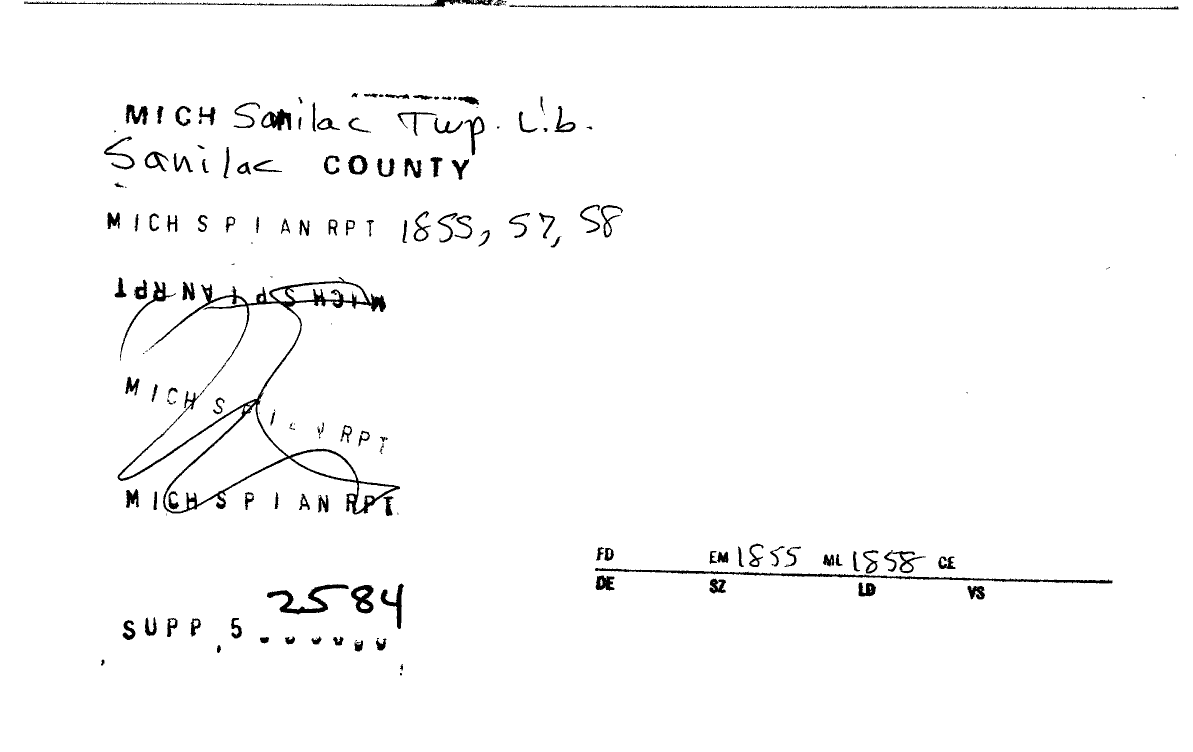 MICH Sanilac Twp. Lib.
Sanilac COUNTY
MICH S P I AN RPT 1855, 57, 58
MICH S P I AN RPT
MICH S P I RPT
MICH S P I AN RPT
2584
SUPP, 5 ......
FD EM 1855 ML 1858 CE
DE SZ LD VS